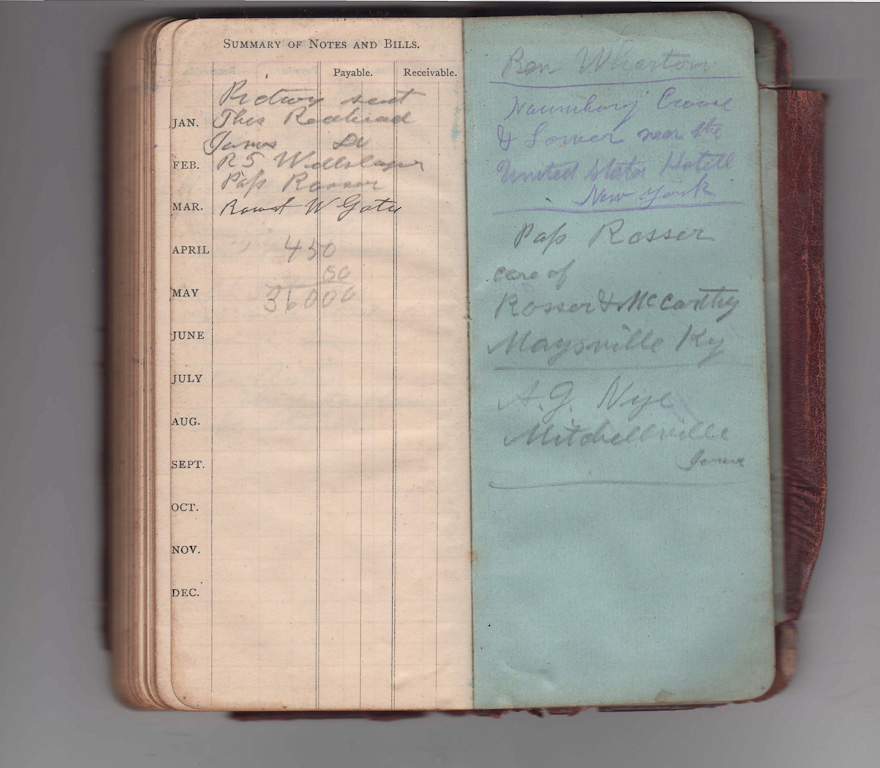 SUMMARY OF NOTES AND BILLS.
Payable. Receivable.
Pictures sent
JAN. Thos Redhead
James Do
FEB. R S
Pap Rosser
MAR. W Gates
APRIL 450
80
MAY 36000
JUNE
JULY
AUG.
SEPT.
OCT.
NOV.
DEC.
Ben Wharton
Naumburg Crouse
& Lower near the
United States Hotell
New York
Pap Rosser
care of
Rosser & McCarthy
Maysville Ky
A. G. Nye
Mitchellville
Iowa